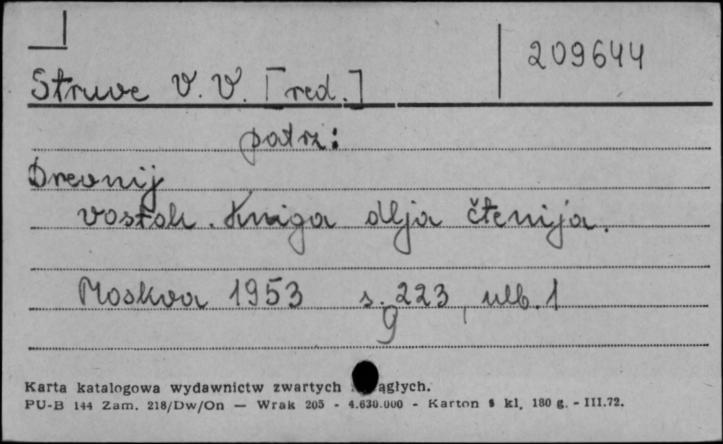 209644
Struve V. V. [red.]
patrz:
Drevnij
vostok. Kniga dlja čtenija.
Moskva 1953 s. 223, nlb. 1
9
Karta katalogowa wydawnictw zwartych ągłych.
PU-B 144 Zam. 218/Dw/On — Wrak 205 - 4.630.000 - Karton kl, 180 g. - III.72.